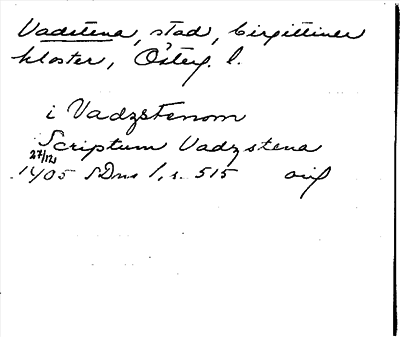 Vadstena, stad, birgittiner
kloster, Österg. l.
i Vadzstenom
Scriptum Vadzstena
27/12
1405 SDns 1, s. 515 orig